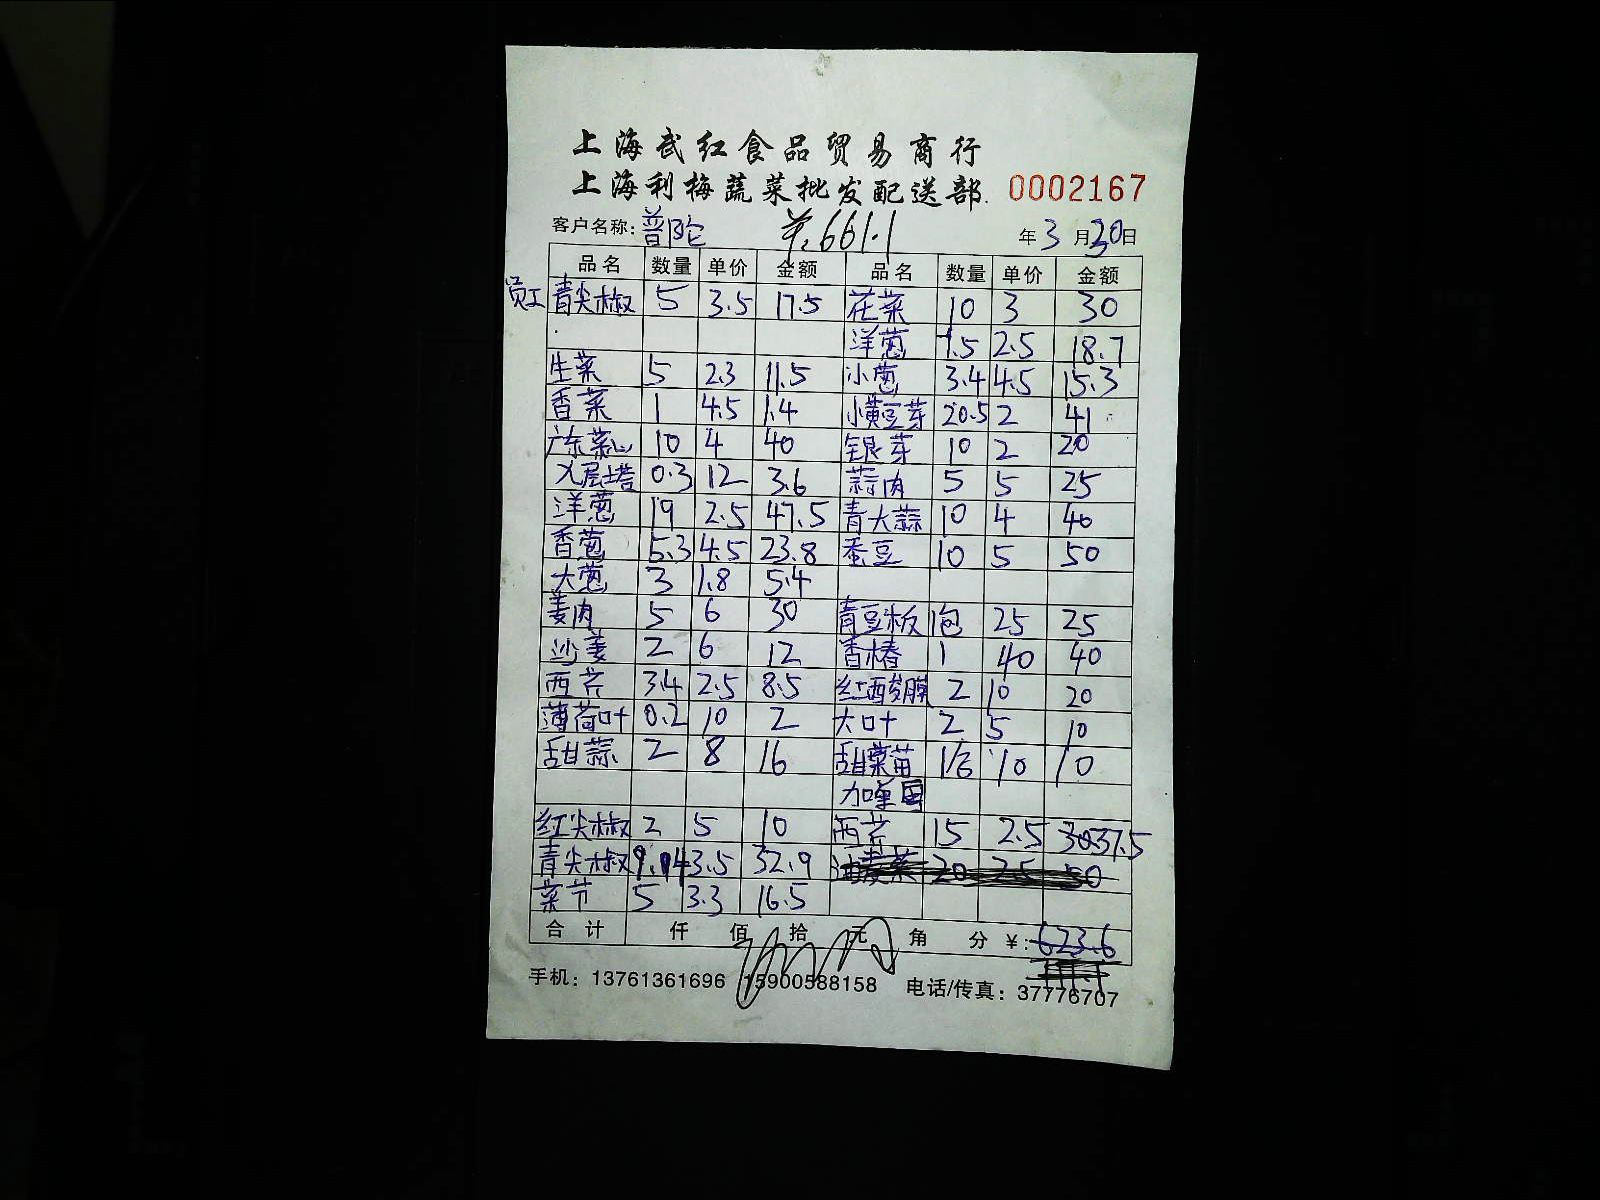 上海武红食品贸易商行
上海利梅蔬菜批发配送部 0002167
客户名称: 普陀 ¥:661.1 年 3 月 30 日
品名 数量 单价 金额 品名 数量 单价 金额
员工 青尖椒 5 3.5 17.5 花菜 10 3 30
洋葱 7.5 2.5 18.7
生菜 5 2.3 11.5 小葱 3.4 4.5 15.3
香菜 1 4.5 1.4 小黄豆芽 20.5 2 41
广东菜心 10 4 40 银芽 10 2 20
九层塔 0.3 12 3.6 蒜肉 5 5 25
洋葱 19 2.5 47.5 青大蒜 10 4 40
香葱 5.3 4.5 23.8 蚕豆 10 5 50
大葱 3 1.8 5.4
姜肉 5 6 30 青豆板 1包 25 25
沙姜 2 6 12 香椿 1 40 40
西芹 3.4 2.5 8.5 红酸膜 2 10 20
薄荷叶 0.2 10 2 大叶 2 5 10
甜蒜 2 8 16 甜菜苗 1/合 10 10
加单
红尖椒 2 5 10 西芹 15 2.5 37.5
青尖椒 9.4 3.5 32.9 油麦菜 20 2.5 50
菜节 5 3.3 16.5
合计 仟 佰 拾 元 角 分 ¥: 623.6
手机: 13761361696 15900588158 电话/传真: 37776707